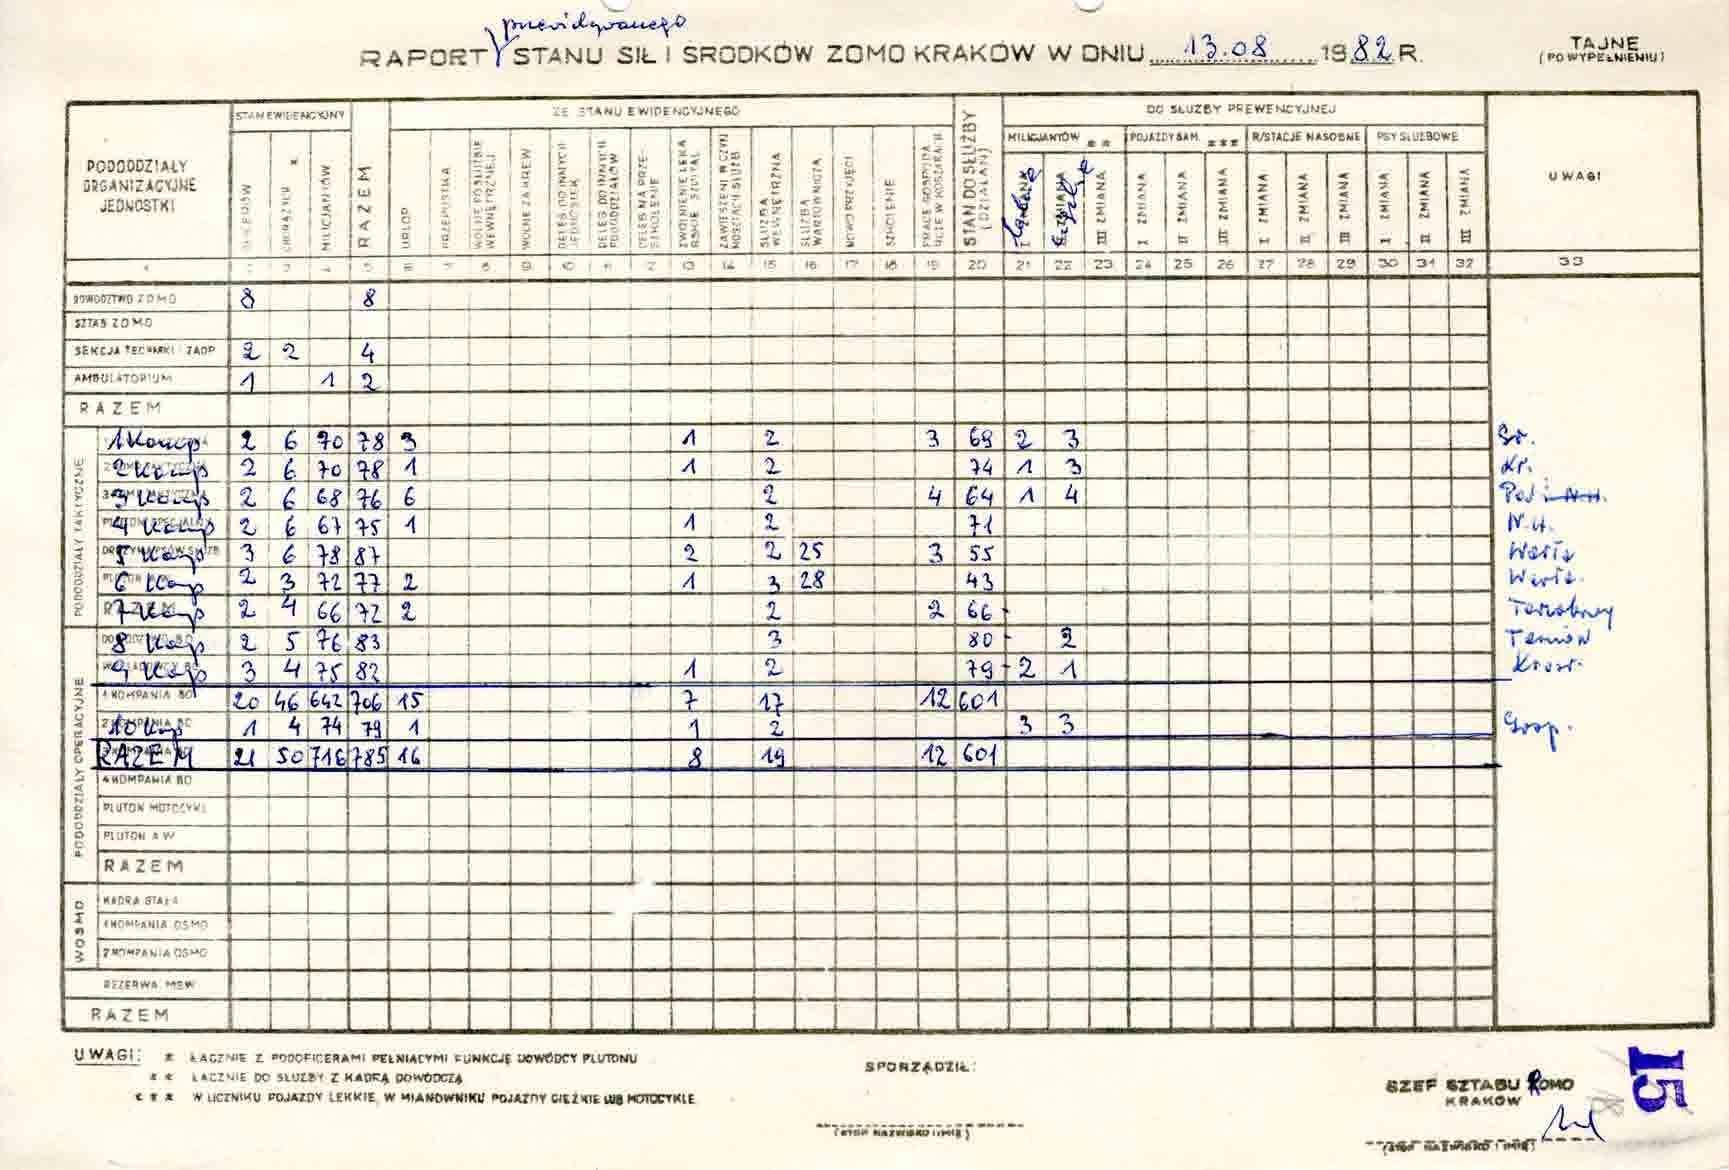 przewidywanego
RAPORT STANU SIŁ I ŚRODKÓW ZOMO KRAKÓW W DNIU 13.08 1982 R.
TAJNE
(PO WYPEŁNIENIU)
PODODDZIAŁY ORGANIZACYJNE JEDNOSTKI
STAN EWIDENCYJNY
ZE STANU EWIDENCYJNEGO
DO SŁUŻBY PREWENCYJNEJ
MILICJANTÓW ** POJAZDY SAM. *** R/STACJE NASOBNE PSY SŁUŻBOWE
UWAGI
OFICERÓW CHORĄŻYCH * MILICJANTÓW RAZEM URLOP PRZEPUSTKA WOLNE PO SŁUŻBIE WEWNĘTRZNEJ WOLNE ZA KREW DELEG. DO INNYCH JEDNOSTEK DELEG. DO INNYCH PODODDZIAŁÓW DELEG. NA PRZESZKOLENIE ZWOLNIENIE LEKARSKIE SZPITAL ZAWIESZENI W CZYNNOŚCIACH SŁUŻB. SŁUŻBA WEWNĘTRZNA SŁUŻBA WARTOWNICZA NOWO PRZYJĘCI SZKOLENIE PRACE GOSPODARCZE W KOSZARACH STAN DO SŁUŻBY (DZIAŁAŃ) I ZMIANA II ZMIANA III ZMIANA I ZMIANA II ZMIANA III ZMIANA I ZMIANA II ZMIANA III ZMIANA I ZMIANA II ZMIANA III ZMIANA
1 2 3 4 5 6 7 8 9 10 11 12 13 14 15 16 17 18 19 20 21 22 23 24 25 26 27 28 29 30 31 32 33
DOWÓDZTWO ZOMO 8 8
SZTAB ZOMO
SEKCJA TECHNIKI I ZAOP. 2 2 4
AMBULATORIUM 1 1 2
RAZEM
PODODDZIAŁY TAKTYCZNE
1 Komp 2 6 70 78 3 1 2 3 69 2 3 Śr.
2 Komp 2 6 70 78 1 1 2 74 1 3 Kr.
3 Komp 2 6 68 76 6 2 4 64 1 4 Pod
4 Komp 2 6 67 75 1 1 2 71 N.H.
5 Komp 3 6 78 87 2 2 25 3 55 Warta
6 Komp 2 3 72 77 2 1 3 28 43 Warta
RAZEM
7 Komp 2 4 66 72 2 2 2 66
PODODDZIAŁY OPERACYJNE
8 Komp 2 5 76 83 3 80 2 Tarnów
9 Komp 3 4 75 82 1 2 79 2 1
1 KOMPANIA BO 20 46 642 706 15 7 17 12 601
2 KOMPANIA BO
10 Komp 1 4 74 79 1 1 2 3 3 Gosp.
RAZEM 21 50 716 785 16 8 19 12 601
4 KOMPANIA BO
PLUTON MOTOCYKL
PLUTON A W
RAZEM
WOSMO
KADRA STAŁA
1 KOMPANIA OSMO
2 KOMPANIA OSMO
REZERWA MSW
RAZEM
UWAGI: * ŁĄCZNIE Z PODOFICERAMI PEŁNIĄCYMI FUNKCJĘ DOWÓDCY PLUTONU
** ŁĄCZNIE DO SŁUŻBY Z KADRĄ DOWÓDCZĄ
*** W LICZNIKU POJAZDY LEKKIE, W MIANOWNIKU POJAZDY CIĘŻKIE LUB MOTOCYKLE
SPORZĄDZIŁ:
(STOP. NAZWISKO I IMIĘ)
SZEF SZTABU ZOMO
KRAKÓW
(STOP. NAZWISKO I IMIĘ)
15